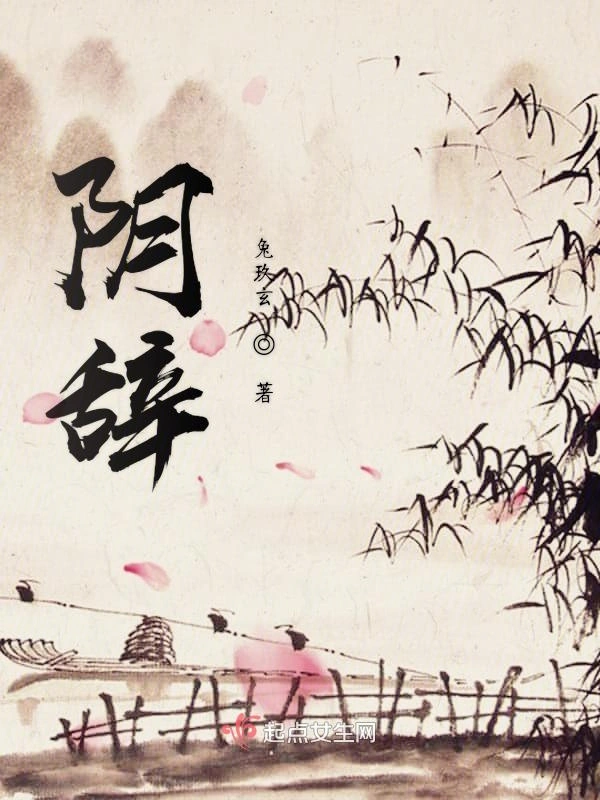 阴辞
兔玖玄◎ 著
起点女生网